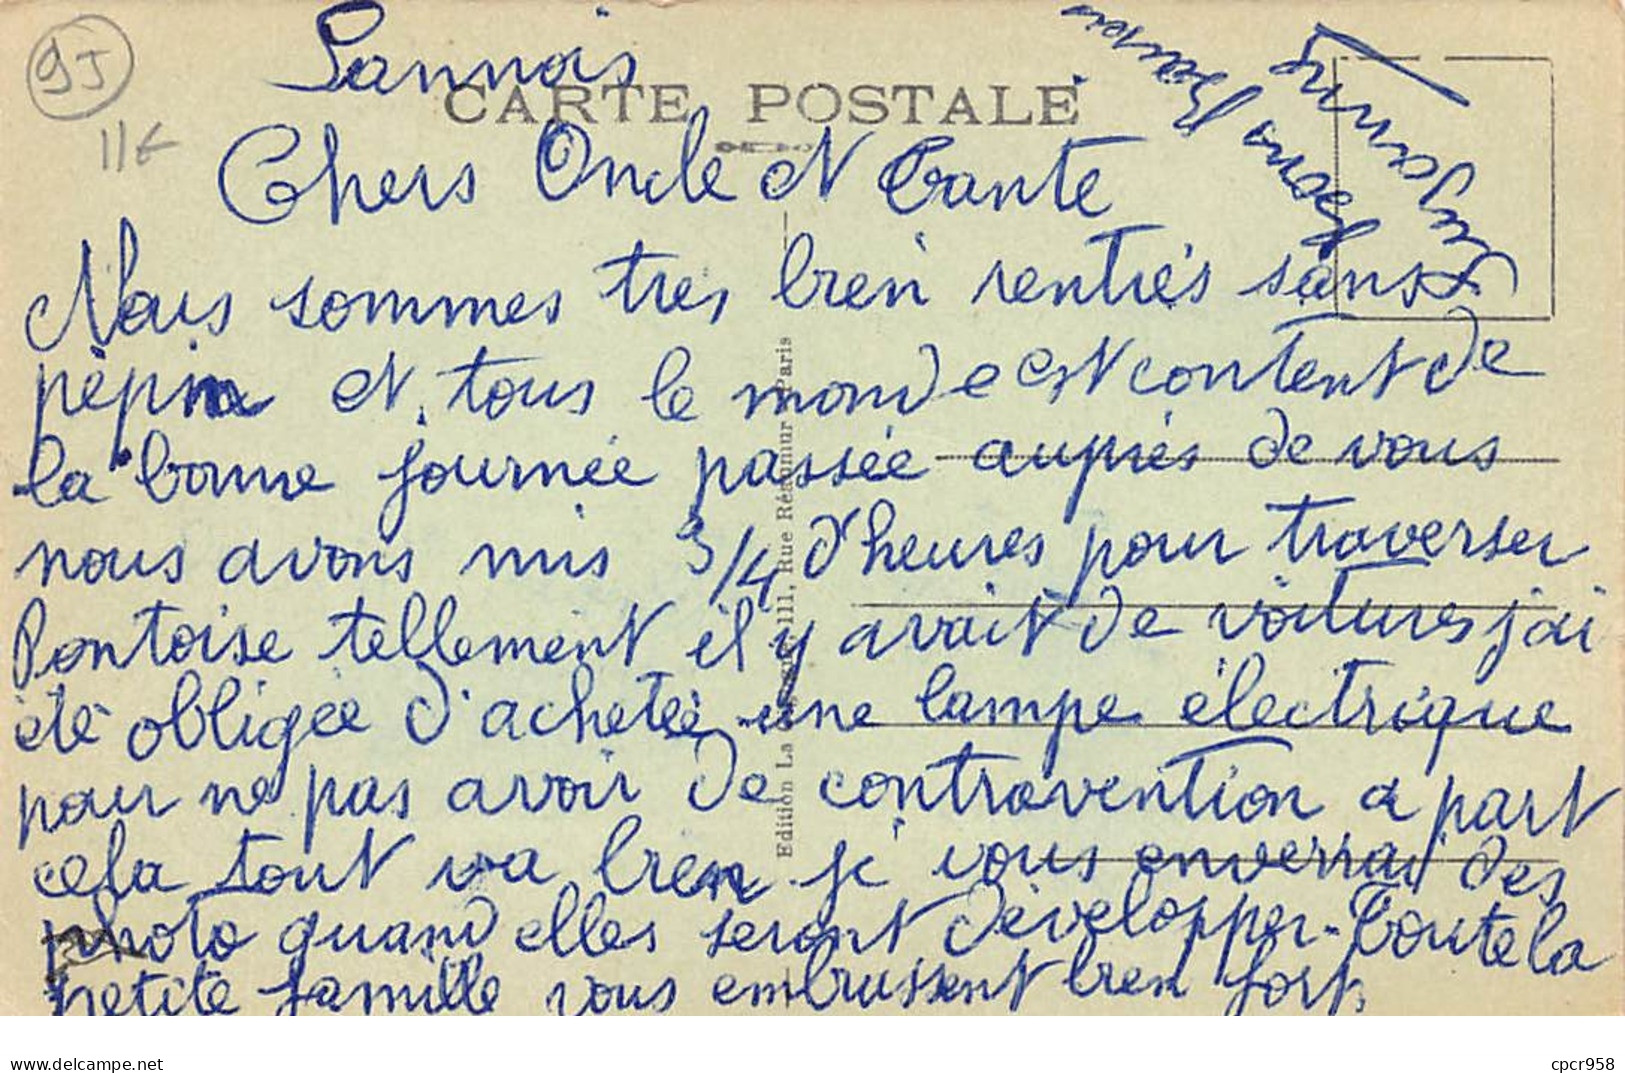 95
11€
Sannois
CARTE POSTALE
Chers Oncle et Tante
Nous sommes tres bien rentrés sans
pépin et tous le monde est content de
la bonne journée passée auprés de vous
nous avons mis 3/4 d'heures pour traverser
Pontoise tellement il y avait de voitures j'ai
été obligée d'achetée une lampe électrique
pour ne pas avoir de contravention a part
cela tout va bien je vous enverrai des
photo quand elles seront développer. Toute la
petite famille vous embrassent bien fort
Bons Baisers
Edition La 111, Rue Réaumur Paris
Delcampe.net
cpcr958